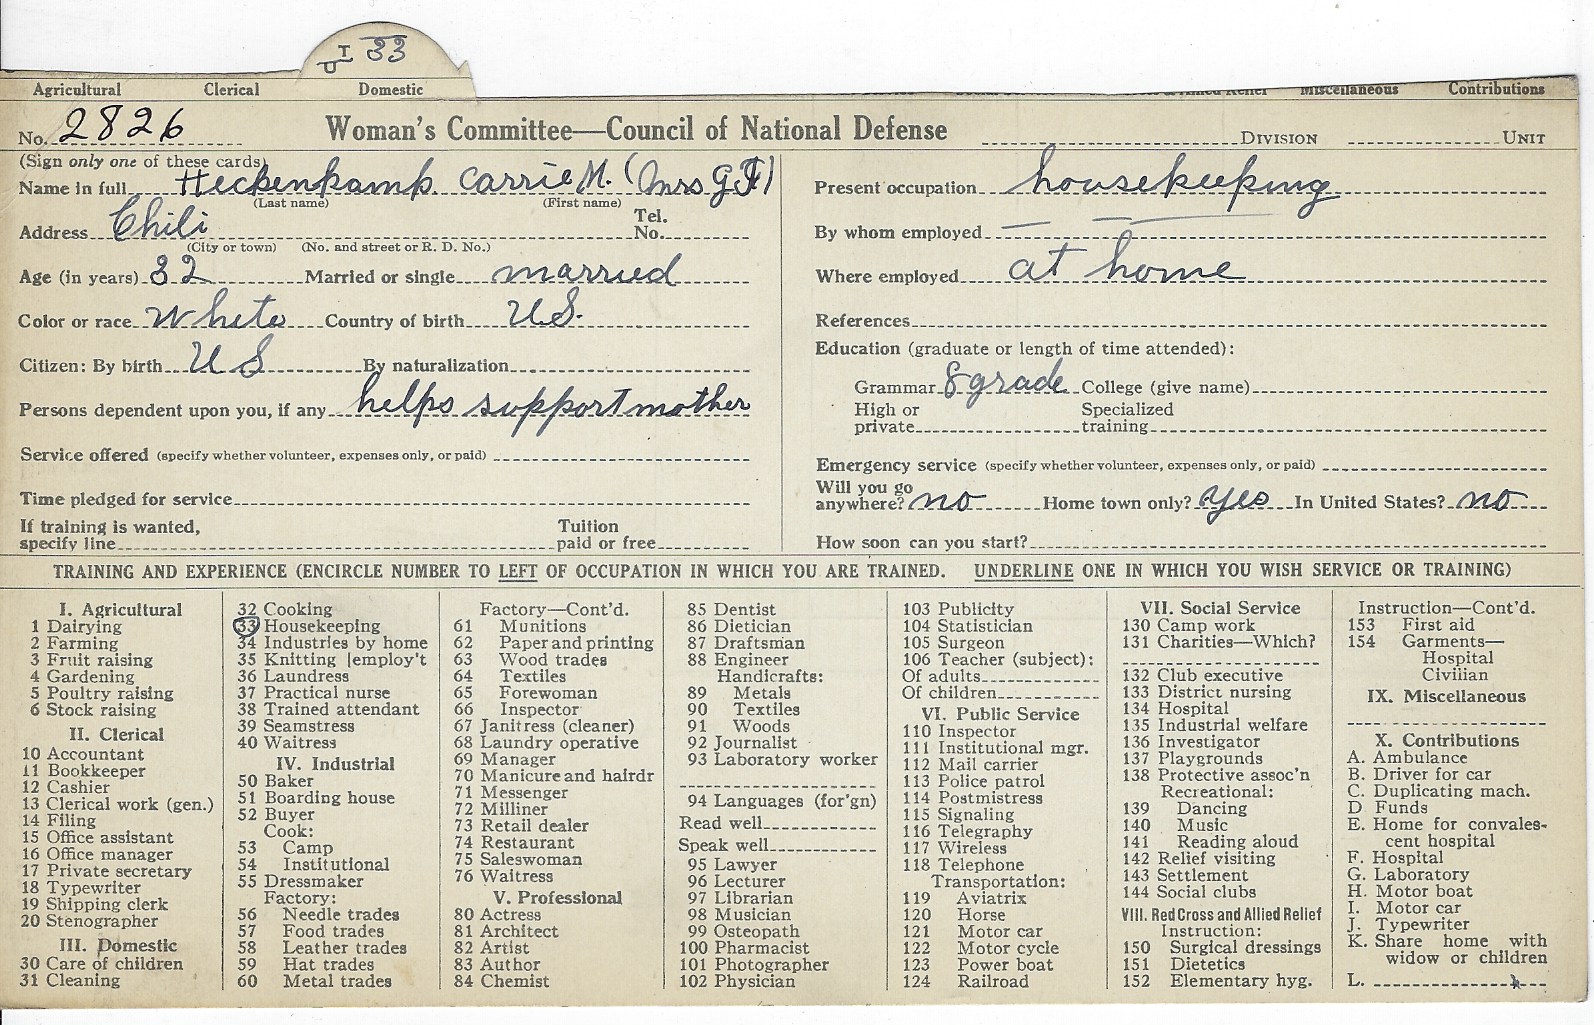 T 33
U
Agricultural Clerical Domestic Miscellaneous Contributions
No. 2826 Woman's Committee—Council of National Defense DIVISION UNIT
(Sign only one of these cards)
Name in full Heckenkamp Carrie M. (Mrs G F)
(Last name) (First name)
Address Chili Tel. No.
(City or town) (No. and street or R. D. No.)
Age (in years) 32 Married or single married
Color or race White Country of birth U.S.
Citizen: By birth U S By naturalization
Persons dependent upon you, if any helps support mother
Service offered (specify whether volunteer, expenses only, or paid)
Time pledged for service
If training is wanted, specify line Tuition paid or free
Present occupation housekeeping
By whom employed —
Where employed at home
References
Education (graduate or length of time attended):
Grammar 8 grade College (give name)
High or private Specialized training
Emergency service (specify whether volunteer, expenses only, or paid)
Will you go anywhere? no Home town only? yes In United States? no
How soon can you start?
TRAINING AND EXPERIENCE (ENCIRCLE NUMBER TO LEFT OF OCCUPATION IN WHICH YOU ARE TRAINED. UNDERLINE ONE IN WHICH YOU WISH SERVICE OR TRAINING)
I. Agricultural
1 Dairying
2 Farming
3 Fruit raising
4 Gardening
5 Poultry raising
6 Stock raising
II. Clerical
10 Accountant
11 Bookkeeper
12 Cashier
13 Clerical work (gen.)
14 Filing
15 Office assistant
16 Office manager
17 Private secretary
18 Typewriter
19 Shipping clerk
20 Stenographer
III. Domestic
30 Care of children
31 Cleaning
32 Cooking
33 Housekeeping
34 Industries by home
35 Knitting [employ't
36 Laundress
37 Practical nurse
38 Trained attendant
39 Seamstress
40 Waitress
IV. Industrial
50 Baker
51 Boarding house
52 Buyer
Cook:
53 Camp
54 Institutional
55 Dressmaker
Factory:
56 Needle trades
57 Food trades
58 Leather trades
59 Hat trades
60 Metal trades
Factory—Cont'd.
61 Munitions
62 Paper and printing
63 Wood trades
64 Textiles
65 Forewoman
66 Inspector
67 Janitress (cleaner)
68 Laundry operative
69 Manager
70 Manicure and hairdr
71 Messenger
72 Milliner
73 Retail dealer
74 Restaurant
75 Saleswoman
76 Waitress
V. Professional
80 Actress
81 Architect
82 Artist
83 Author
84 Chemist
85 Dentist
86 Dietician
87 Draftsman
88 Engineer
Handicrafts:
89 Metals
90 Textiles
91 Woods
92 Journalist
93 Laboratory worker
94 Languages (for'gn)
Read well
Speak well
95 Lawyer
96 Lecturer
97 Librarian
98 Musician
99 Osteopath
100 Pharmacist
101 Photographer
102 Physician
103 Publicity
104 Statistician
105 Surgeon
106 Teacher (subject):
Of adults
Of children
VI. Public Service
110 Inspector
111 Institutional mgr.
112 Mail carrier
113 Police patrol
114 Postmistress
115 Signaling
116 Telegraphy
117 Wireless
118 Telephone
Transportation:
119 Aviatrix
120 Horse
121 Motor car
122 Motor cycle
123 Power boat
124 Railroad
VII. Social Service
130 Camp work
131 Charities—Which?
132 Club executive
133 District nursing
134 Hospital
135 Industrial welfare
136 Investigator
137 Playgrounds
138 Protective assoc'n
Recreational:
139 Dancing
140 Music
141 Reading aloud
142 Relief visiting
143 Settlement
144 Social clubs
VIII. Red Cross and Allied Relief
Instruction:
150 Surgical dressings
151 Dietetics
152 Elementary hyg.
Instruction—Cont'd.
153 First aid
154 Garments—
Hospital
Civilian
IX. Miscellaneous
X. Contributions
A. Ambulance
B. Driver for car
C. Duplicating mach.
D Funds
E. Home for convales-
cent hospital
F. Hospital
G. Laboratory
H. Motor boat
I. Motor car
J. Typewriter
K. Share home with
widow or children
L.